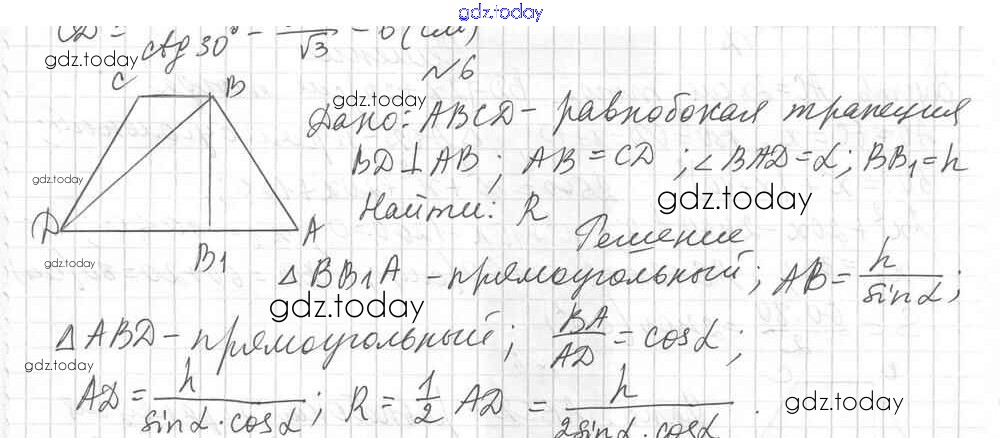 gdz.today
CD = ctg 30° = /√3 = 6 (см)
gdz.today
№6
C B
gdz.today
Дано: ABCD - равнобокая трапеция
BD⊥AB; AB = CD; ∠BAD = α; BB₁ = h
gdz.today
gdz.today
Найти: R
D B₁ A
Решение
gdz.today
△BB₁A - прямоугольный; AB = h/sinα;
gdz.today
△ABD - прямоугольный; BA/AD = cosα;
gdz.today
AD = h/(sinα·cosα); R = 1/2 AD = h/(2sinα·cosα).
gdz.today